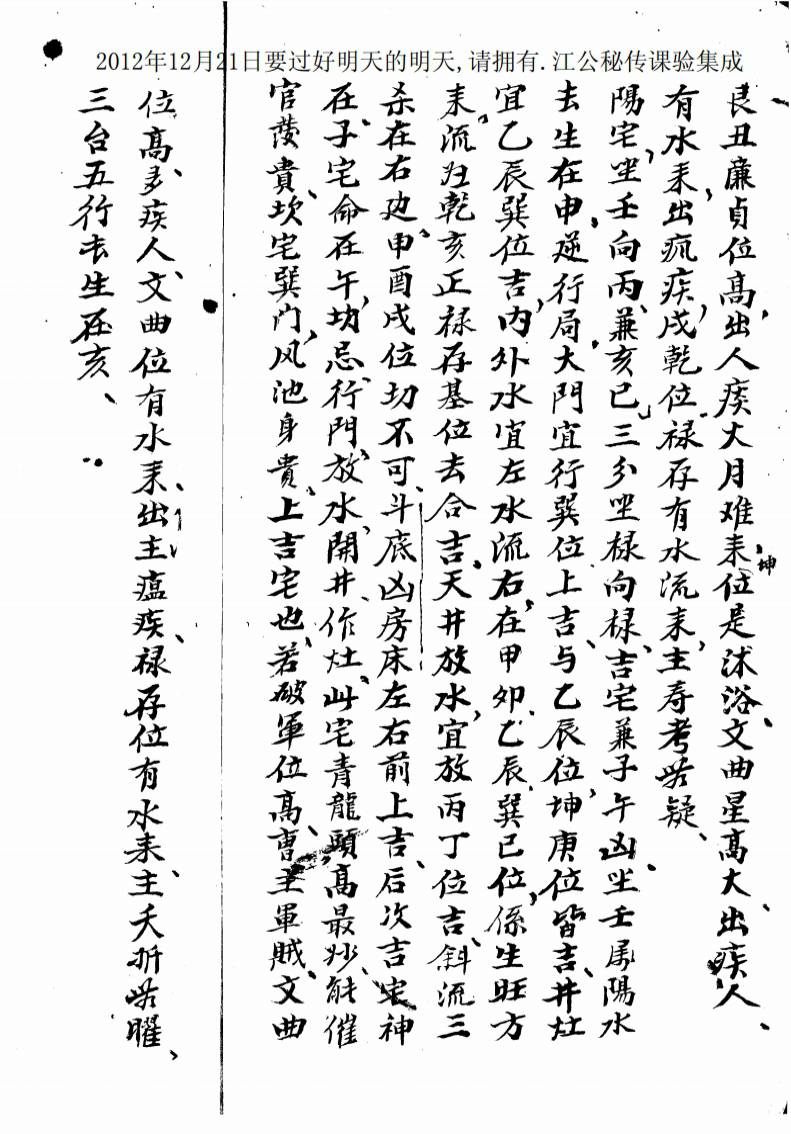 2012年12月21日要过好明天的明天,请拥有.江公秘传课验集成
艮丑廉貞位高、出人痰大月难耒位是沭浴、文曲星高大、出疾人、
坤
有水耒出疯疾、戌乾位禄存有水流耒、主寿考毋疑、
陽宅、坐壬向丙、兼亥巳、三分坐禄向禄、吉宅兼子午凶、坐壬属陽水
去生在申、逆行局、大門宜行巽位上吉、与乙辰位、坤庚位皆吉、井灶
宜乙辰巽位吉、内外水宜左水流右、在甲卯、乙辰、巽巳位、係生旺方
耒、流归乾亥正禄存基位去合吉、天井放水、宜放丙丁位吉、斜流三
杀在右边、申酉戌位切不可、斗底凶房床左右前上吉、后次吉、宅神
在子宅命在午、切忌、行門、放水、開井、作灶、此宅青龍頭高最妙、能催
官發貴、坎宅巽门、风池身貴、上吉宅也、若破軍位高、主軍賊、文曲
位高、多疾人、文曲位有水耒、出主瘟疾、禄存位有水耒、主夭折毋曜、
三台五行長生在亥、